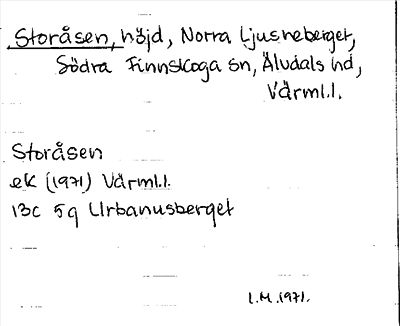 Storåsen, höjd, Norra Ljusneberget,
Södra Finnskoga sn, Älvdals hd,
Värml.l.
Storåsen
ek (1971) Värml.l.
13c 5g Urbanusberget
I.M.1971.